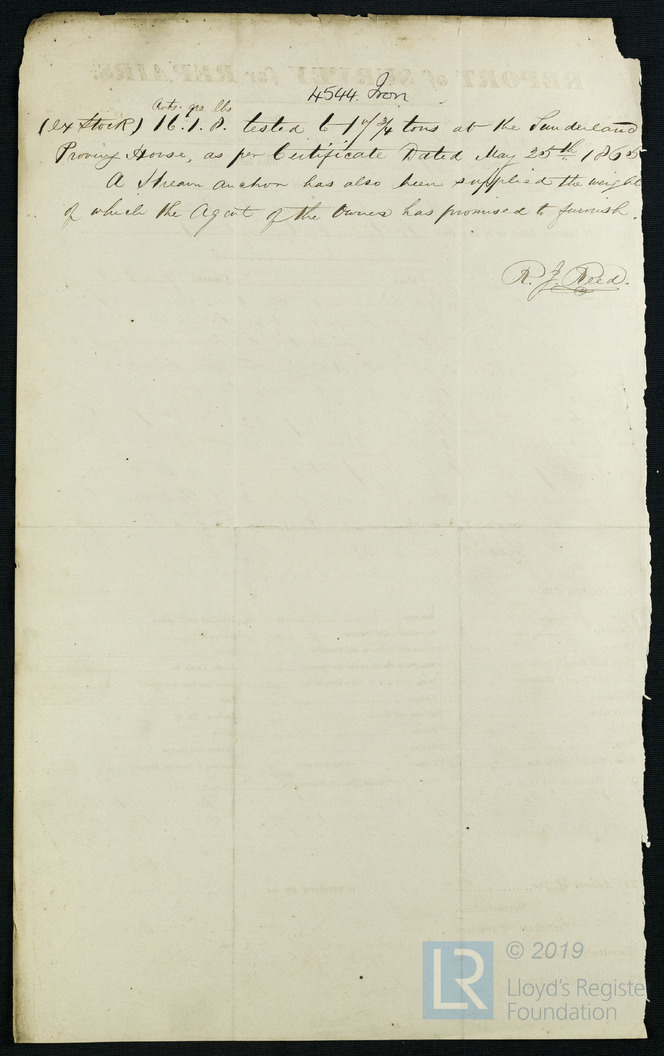 4544. Iron
Cwts. qrs lbs
(ex Stock) 16. 1. 8. tested to 3/4 tons at the Sunderland
Proving House, as per Certificate Dated May 25th 186
A Stream anchor has also been supplied the weight
of which the Agent of the Owner has promised to furnish.
R. J. Reed.
REPORT of SURVEY for REPAIRS.
LR
© 2019
Lloyd's Register
Foundation